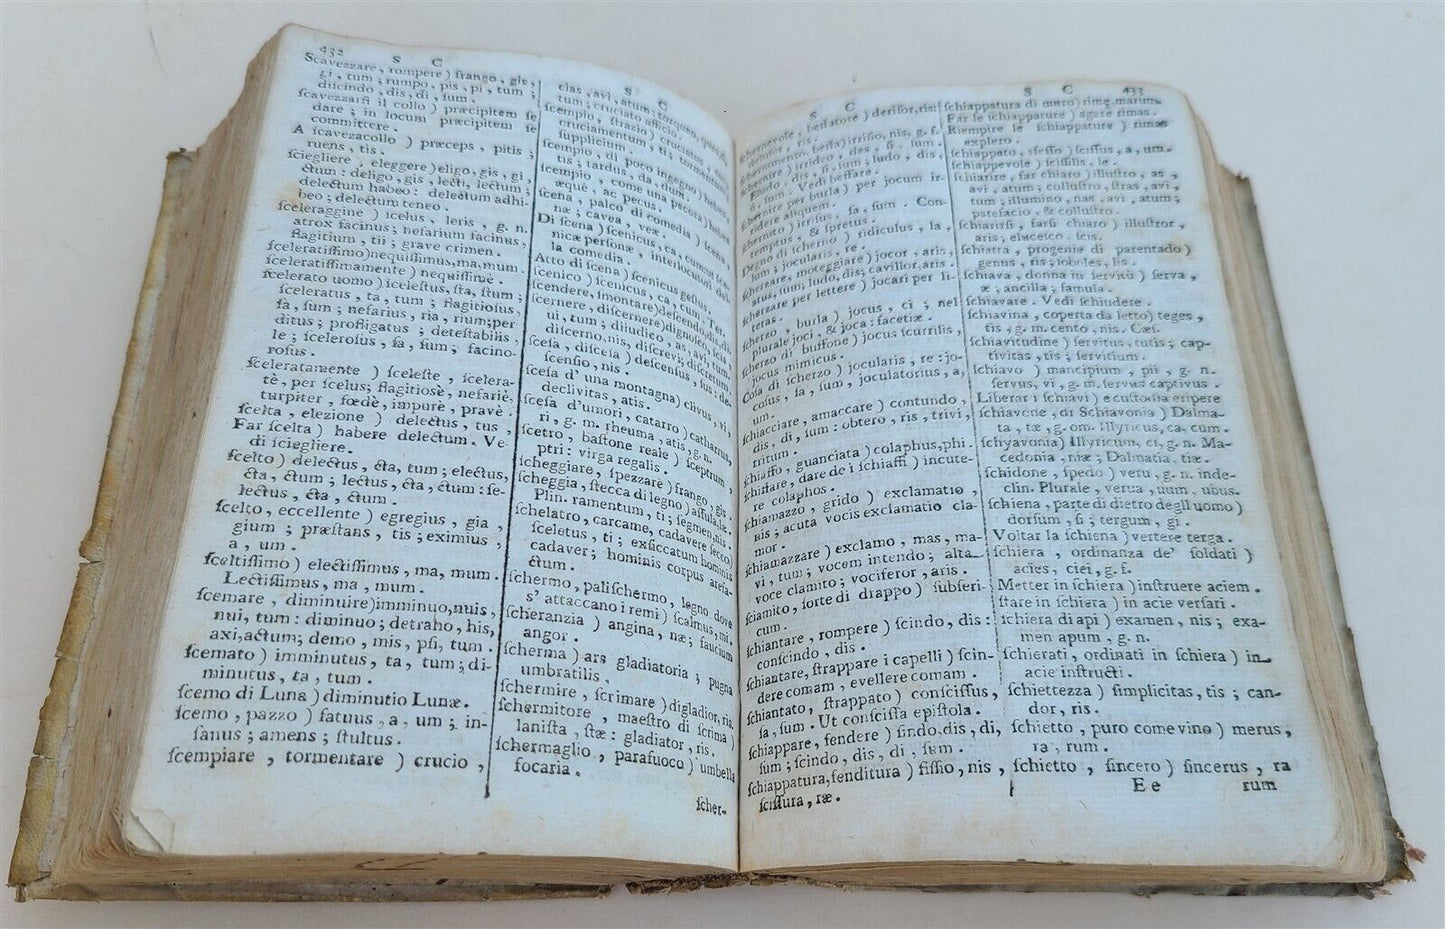 432
S C
Scavezzare, rompere) frango, gis,
gi, tum; rumpo, pis, pi, tum;
diucindo, dis, di, ſum.
ſcavezzarſi il collo) præcipitem ſe
dare; in locum præcipitem ſe
committere.
A ſcavezacollo) præceps, pitis;
ruens, tis.
ſciegliere, eleggere) eligo, gis, gi,
ctum: deligo, gis, lecti, lectum;
delectum habeo: delectum adhi-
beo; delectum teneo.
ſceleraggine) ſcelus, leris, g. n.
atrox facinus; nefarium facinus,
flagitium, tii; grave crimen.
ſceleratiſſimo) nequiſſimus, ma, mum.
ſceleratiſſimamente) nequiſſimè.
ſcelerato uomo) ſceleſtus, ſta, ſtum;
ſceleratus, ta, tum; flagitioſus,
ſa, ſum; nefarius, ria, rium; per
ditus; profligatus; deteſtabilis,
le; ſceleroſus, ſa, ſum; facino-
roſus.
ſceleratamente) ſceleſte, ſcelera-
tè, per ſcelus; flagitiosè, nefariè,
turpiter, fœdè, impurè, pravè.
ſcelta, elezione) delectus, tus.
Far ſcelta) habere delectum. Ve-
di ſciegliere.
ſcelto) delectus, cta, tum; electus,
cta, ctum; lectus, cta, ctum: ſe-
lectus, cta, ctum.
ſcelto, eccellente) egregius, gia,
gium; præſtans, tis; eximius,
a, um.
ſceltiſſimo) electiſſimus, ma, mum.
Lectiſſimus, ma, mum.
ſcemare, diminuire) imminuo, nuis,
nui, tum: diminuo; detraho, his,
axi, actum; demo, mis, pſi, tum.
ſcemato) imminutus, ta, tum; di-
minutus, ta, tum.
ſcemo di Luna) diminutio Lunæ.
ſcemo, pazzo) fatuus, a, um; in-
ſanus; amens; ſtultus.
ſcempiare, tormentare) crucio,
S C
cias, avi, atum: torqueo,
tum; cruciatu afficio.
ſcempio, ſtrazio) cruciatus,
cruciamentum, ti; tormentum
ſupplicium.
ſcempio, di poco ingegno) hebes
tis; tardus, da, dum.
ſcempio, come una pecora)
æquè, ac pecus.
ſcena, palco di comedia) ſcena,
næ; cavea, veæ.
Di ſcena) ſcenicus, ca, cum; ſce-
nicæ perſonæ, interlocutori del
la comedia.
Atto di ſcena) ſcenicus geſtus.
ſcenico) ſcenicus, ca, cum. Ter.
ſcendere, ſmontare) deſcendo, dis, di.
ſcernere, diſcernere) dignoſco,
ui, tum; diiudico, as, avi, tum;
diſcerno, nis, diſcrevi; diſcretum.
ſceſa, diſceſa) deſcenſus, ſus: de-
ſcenſio, nis.
ſceſa d' una montagna) clivus, vi,
declivitas, atis.
ſceſa d'umori, catarro) catharrus,
ri, g. m. rheuma, atis, g. n.
ſcetro, baſtone reale) ſceptrum,
ptri: virga regalis.
ſcheggiare, ſpezzare) frango, gis.
ſcheggia, ſtecca di legno) aſſula, læ.
Plin. ramentum, ti; ſegmen, nis.
ſchelatro, carcame, cadavere ſecco)
ſceletus, ti; exſiccatum hominis
cadaver; hominis corpus arefa-
ctum.
ſchermo, paliſchermo, legno dove
s' attaccano i remi) ſcalmus, mi.
ſcheranzia) angina, næ; faucium
angor.
ſcherma) ars gladiatoria; pugna
umbratilis.
ſchermire, ſcrimare) digladior, ris.
ſchermitore, maeſtro di ſcrima)
laniſta, ſtæ: gladiator, ris.
ſchermaglio, parafuoco) umbella
focaria.
ſcher-
S C
ſchernevole, beffatore) deriſor, ris:
ſchernimento, beffa) irriſio, nis, g. f.
ſchernire) irrideo, des, ſi, ſum.
ſum; ludo, dis,
Vedi beffare.
ſchernire per burla) per jocum ir-
ridere aliquem.
ſchernito) irriſus, ſa, ſum. Con-
temptus, & ſpretus.
Degno di ſcherno) ridiculus, la,
lum; jocularis, re.
ſcherzare, moteggiare) jocor, aris,
atus, ſum; ludo, dis; cavillor, aris.
ſcherzare per lettere) jocari per li-
teras.
ſcherzo, burla) jocus, ci; nel
plurale joci, & joca: facetiæ.
ſcherzo di buffone) jocus ſcurrilis,
jocus mimicus.
Coſa di ſcherzo) jocularis, re: jo-
coſus, ſa, ſum, joculatorius, a,
um.
ſchiacciare, amaccare) contundo,
dis, di, ſum: obtero, ris, trivi,
tritum.
ſchiaffo, guanciata) colaphus, phi.
ſchiaffare, dare de i ſchiaffi) incute-
re colaphos.
ſchiamazzo, grido) exclamatio,
nis; acuta vocis exclamatio cla-
mor.
ſchiamazzare) exclamo, mas, ma-
vi, tum; vocem intendo; alta
voce clamito; vociferor, aris.
ſciamito, ſorte di drappo) ſubſeri-
cum.
ſchiantare, rompere) ſcindo, dis:
conſcindo, dis.
ſchiantare, ſtrappare i capelli) ſcin-
dere comam, evellere comam.
ſchiantato, ſtrappato) conſciſſus,
ſa, ſum. Ut conſciſſa epiſtola.
ſchiappare, fendere) findo, dis, di,
ſum; ſcindo, dis, di, ſum.
ſchiappatura, fenditura) fiſſio, nis,
ſciſſura, ræ.
S C 433
ſchiappatura di muro) rimæ, marum.
Far le ſchiappature) agere rimas.
Riempire le ſchiappature) rimas
explero.
ſchiappato, ſfeſſo) ſciſſus, a, um.
ſchiappevole) ſciſſilis, le.
ſchiarire, far chiaro) illuſtro, as,
avi, atum; colluſtro, ſtras, avi,
tum; illumino, nas, avi, atum;
patefacio, & colluſtro.
ſchiarirſi, farſi chiaro) illuſtror,
aris; eluceſco, ſcis.
ſchiatta, progenie di parentado)
genus, ris; ſoboles, lis.
ſchiava, donna in ſervitù) ſerva,
æ; ancilla; famula.
ſchiavare. Vedi ſchiudere.
ſchiavina, coperta da letto) teges,
tis, g. m. cento, nis. Cæſ.
ſchiavitudine) ſervitus, tutis; cap-
tivitas, tis; ſervitium.
ſchiavo) mancipium, pii, g. n.
ſervus, vi, g. m. ſervus captivus.
Liberar i ſchiavi) e cuſtodia eripere
ſchiavone, di Schiavonia) Dalma-
ta, tæ, g. om. Illyricus, ca, cum.
ſchyavonia) Illyricum, ci, g. n. Ma-
cedonia, niæ; Dalmatia, tiæ.
ſchidone, ſpedo) veru, g. n. inde-
clin. Plurale, verua, uum, ubus.
ſchiena, parte di dietro degll uomo)
dorſum, ſi; tergum, gi.
Voltar la ſchiena) vertere terga.
ſchiera, ordinanza de' ſoldati)
acies, ciei, g. f.
Metter in ſchiera) inſtruere aciem.
ſtare in ſchiera) in acie verſari.
ſchiera di api) examen, nis; exa-
men apum, g. n.
ſchierati, ordinati in ſchiera) in
acie inſtructi.
ſchiettezza) ſimplicitas, tis; can-
dor, ris.
ſchietto, puro come vino) merus,
ra, rum.
ſchietto, ſincero) ſincerus, ra
E e rum